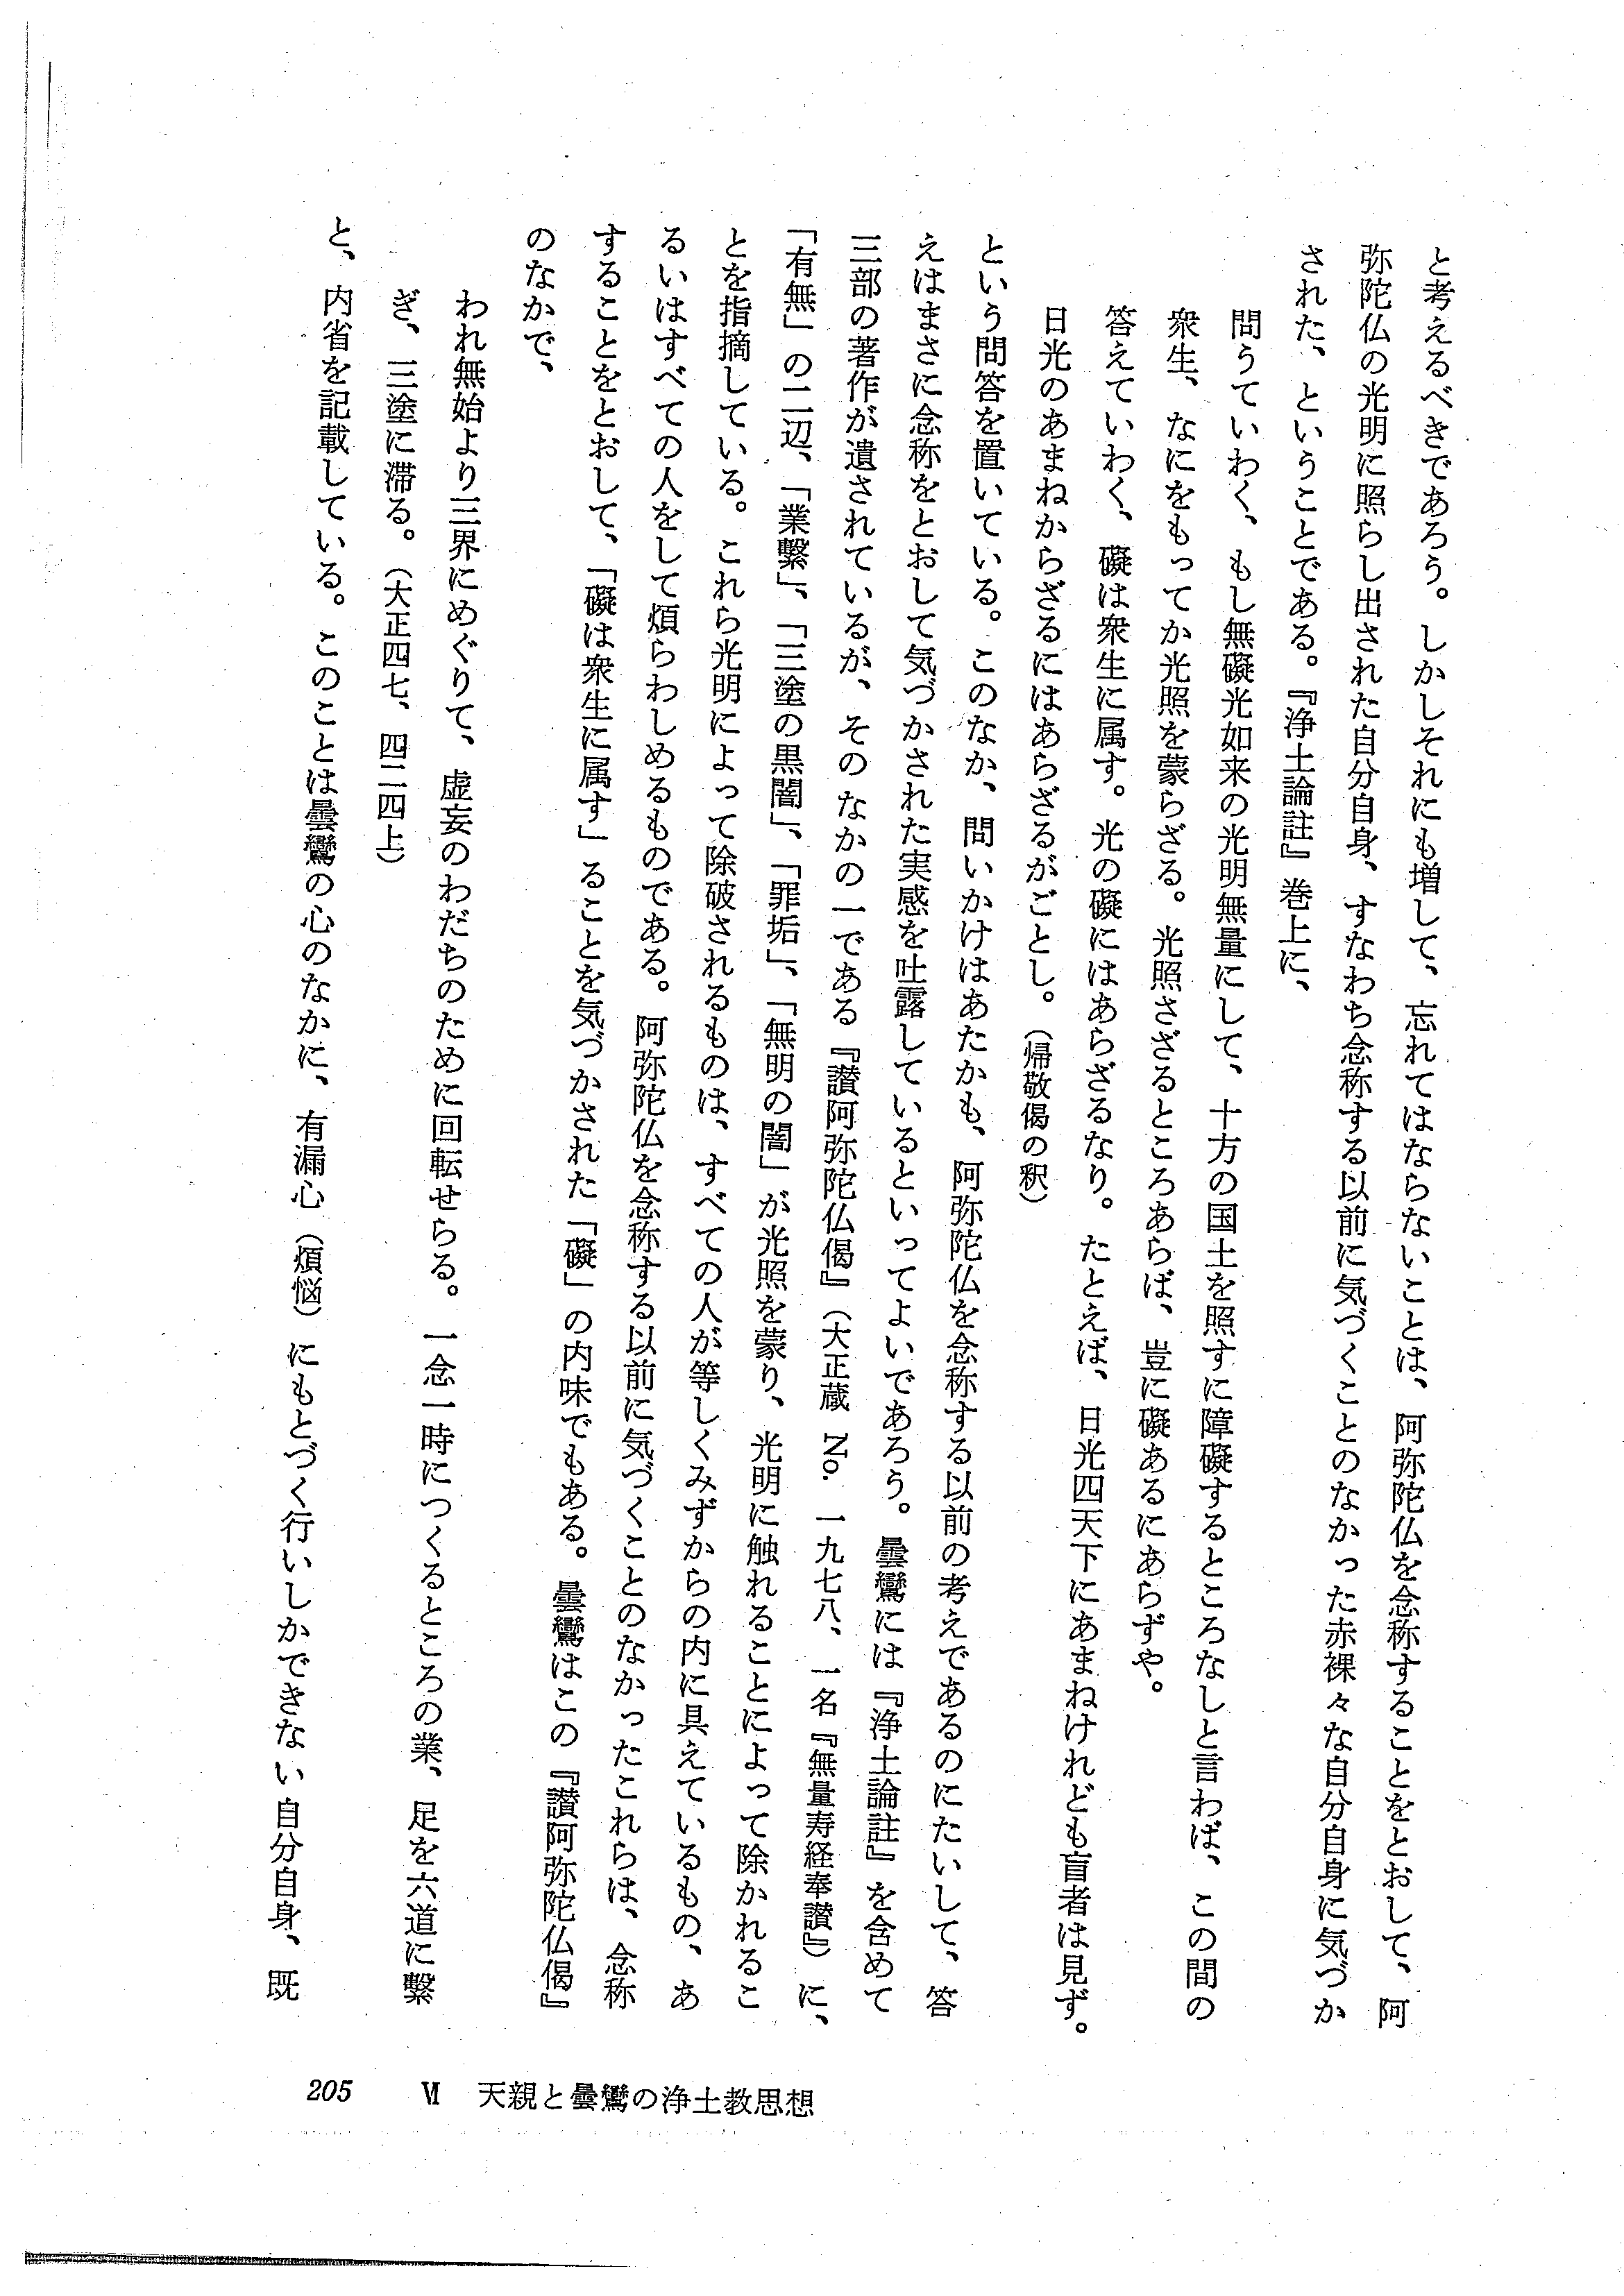 と考えるべきであろう。しかしそれにも増して、忘れてはならないことは、阿弥陀仏を念称することをとおして、阿
弥陀仏の光明に照らし出された自分自身、すなわち念称する以前に気づくことのなかった赤裸々な自分自身に気づか
された、ということである。『浄土論註』巻上に、
問うていわく、もし無礙光如来の光明無量にして、十方の国土を照すに障礙するところなしと言わば、この間の
衆生、なにをもってか光照を蒙らざる。光照さざるところあらば、豈に礙あるにあらずや。
答えていわく、礙は衆生に属す。光の礙にはあらざるなり。たとえば、日光四天下にあまねけれども盲者は見ず。
日光のあまねからざるにはあらざるがごとし。（帰敬偈の釈）
という問答を置いている。このなか、問いかけはあたかも、阿弥陀仏を念称する以前の考えであるのにたいして、答
えはまさに念称をとおして気づかされた実感を吐露しているといってよいであろう。曇鸞には『浄土論註』を含めて
三部の著作が遺されているが、そのなかの一である『讃阿弥陀仏偈』（大正蔵 No. 一九七八、一名『無量寿経奉讃』）に、
「有無」の二辺、「業繫」、「三塗の黒闇」、「罪垢」、「無明の闇」が光照を蒙り、光明に触れることによって除かれるこ
とを指摘している。これら光明によって除破されるものは、すべての人が等しくみずからの内に具えているもの、あ
るいはすべての人をして煩らわしめるものである。阿弥陀仏を念称する以前に気づくことのなかったこれらは、念称
することをとおして、「礙は衆生に属す」ることを気づかされた「礙」の内味でもある。曇鸞はこの『讃阿弥陀仏偈』
のなかで、
われ無始より三界にめぐりて、虚妄のわだちのために回転せらる。一念一時につくるところの業、足を六道に繫
ぎ、三塗に滞る。（大正四七、四二四上）
と、内省を記載している。このことは曇鸞の心のなかに、有漏心（煩悩）にもとづく行いしかできない自分自身、既
205 Ⅵ 天親と曇鸞の浄土教思想